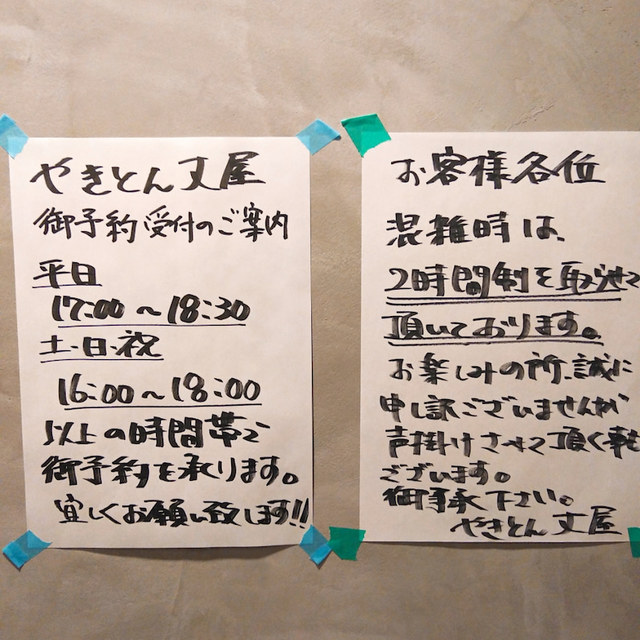 やきとん丈屋
御予約受付のご案内
平日
17:00～18:30
土・日・祝
16:00～18:00
以上の時間帯で
御予約を承ります。
宜しくお願い致します!!
お客様各位
混雑時は、
2時間制を取らせて
頂いております。
お楽しみの所、誠に
申し訳ございませんが
声掛けさせて頂く事も
ございます。
御了承下さい。
やきとん丈屋